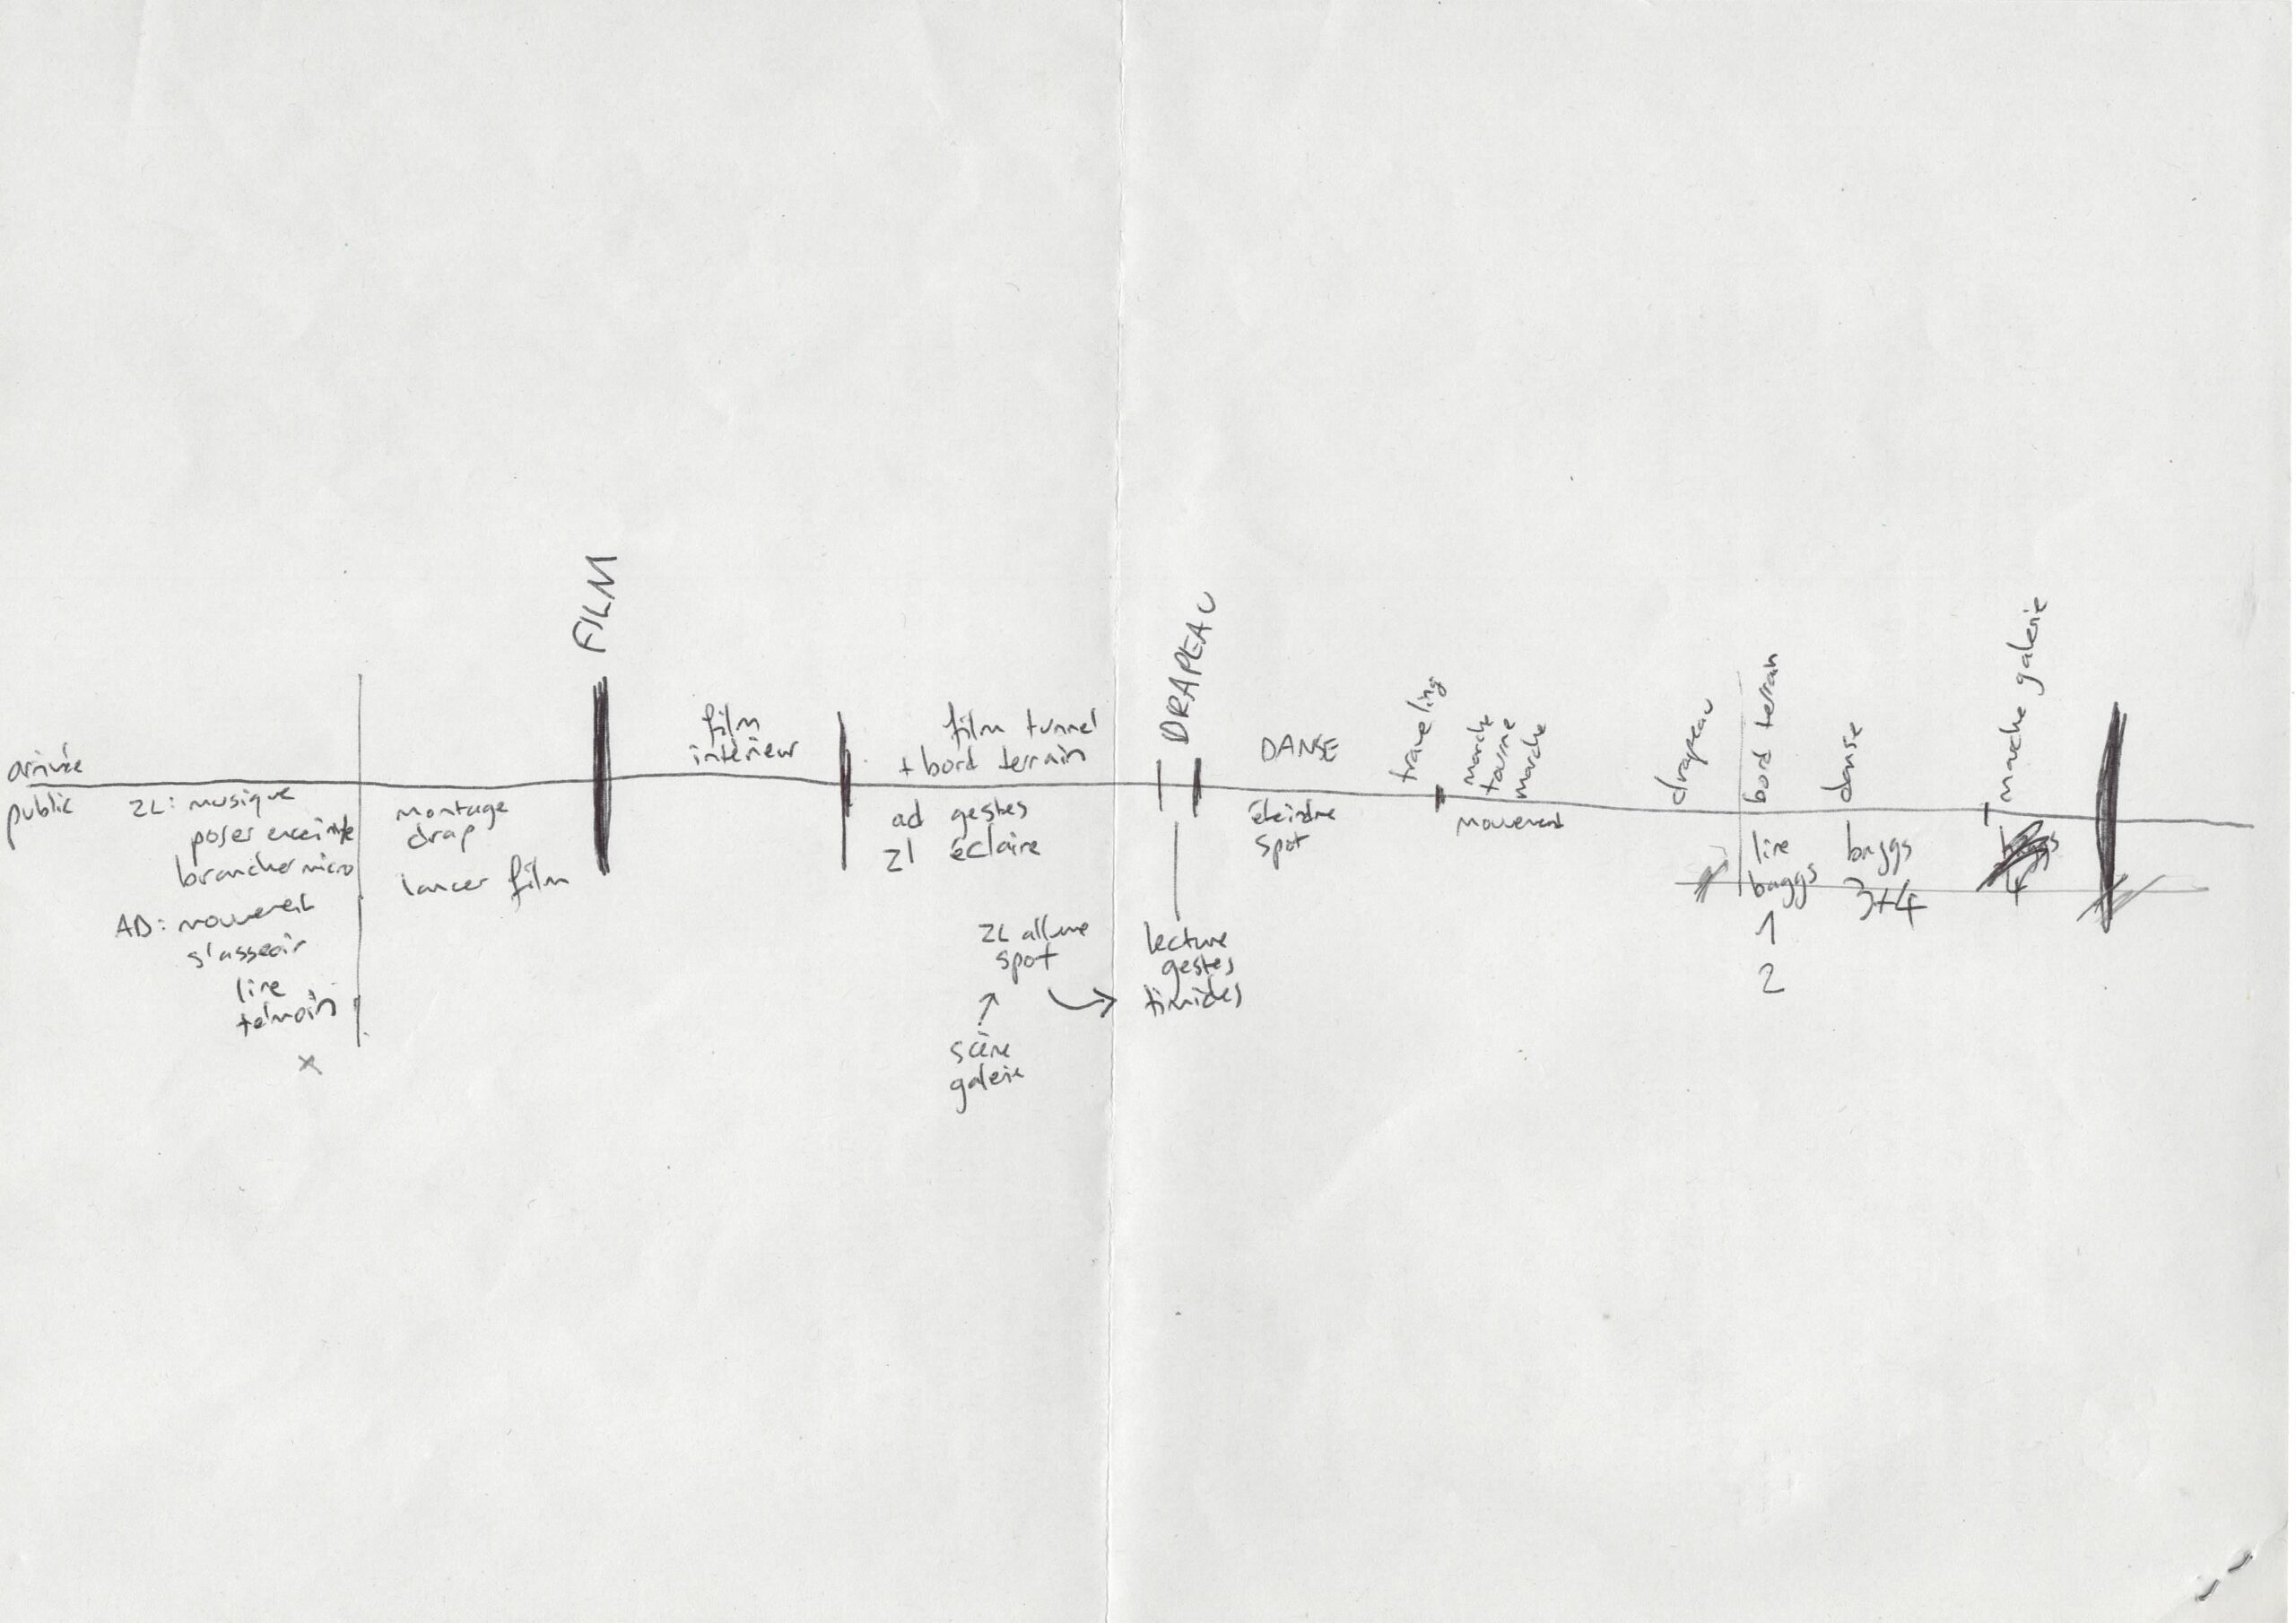 arrivée
public
ZL: musique
poser enceinte
brancher micro
AD: mouvement
s'asseoir
lire
témoin
x
montage
drap
lancer film
FILM
film
intérieur
film tunnel
+ bord terrain
ad gestes
zl éclaire
ZL allume
spot
scène
galerie
DRAPEAU
lecture
gestes
timides
DANSE
éteindre
spot
traveling
marche
tourne
marche
mouvement
drapeau
bord terrain
lire
baggs
1
2
danse
baggs
3+4
marche galerie
4